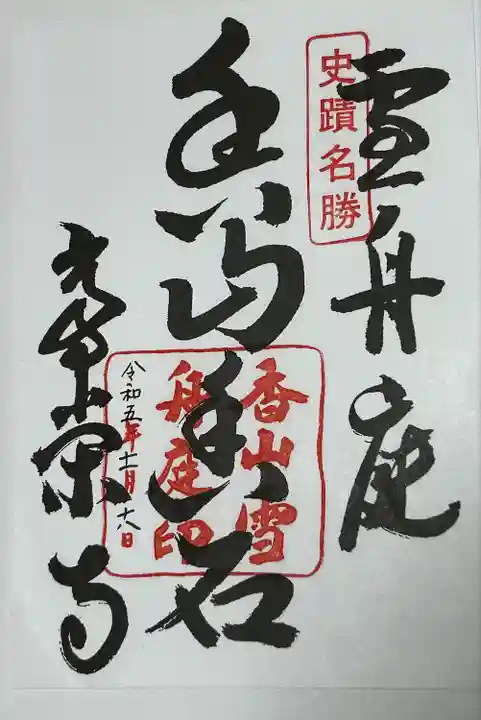 雪舟庭
史蹟名勝
石
香山雪
舟庭印
令和五年十一月十八日
常栄寺